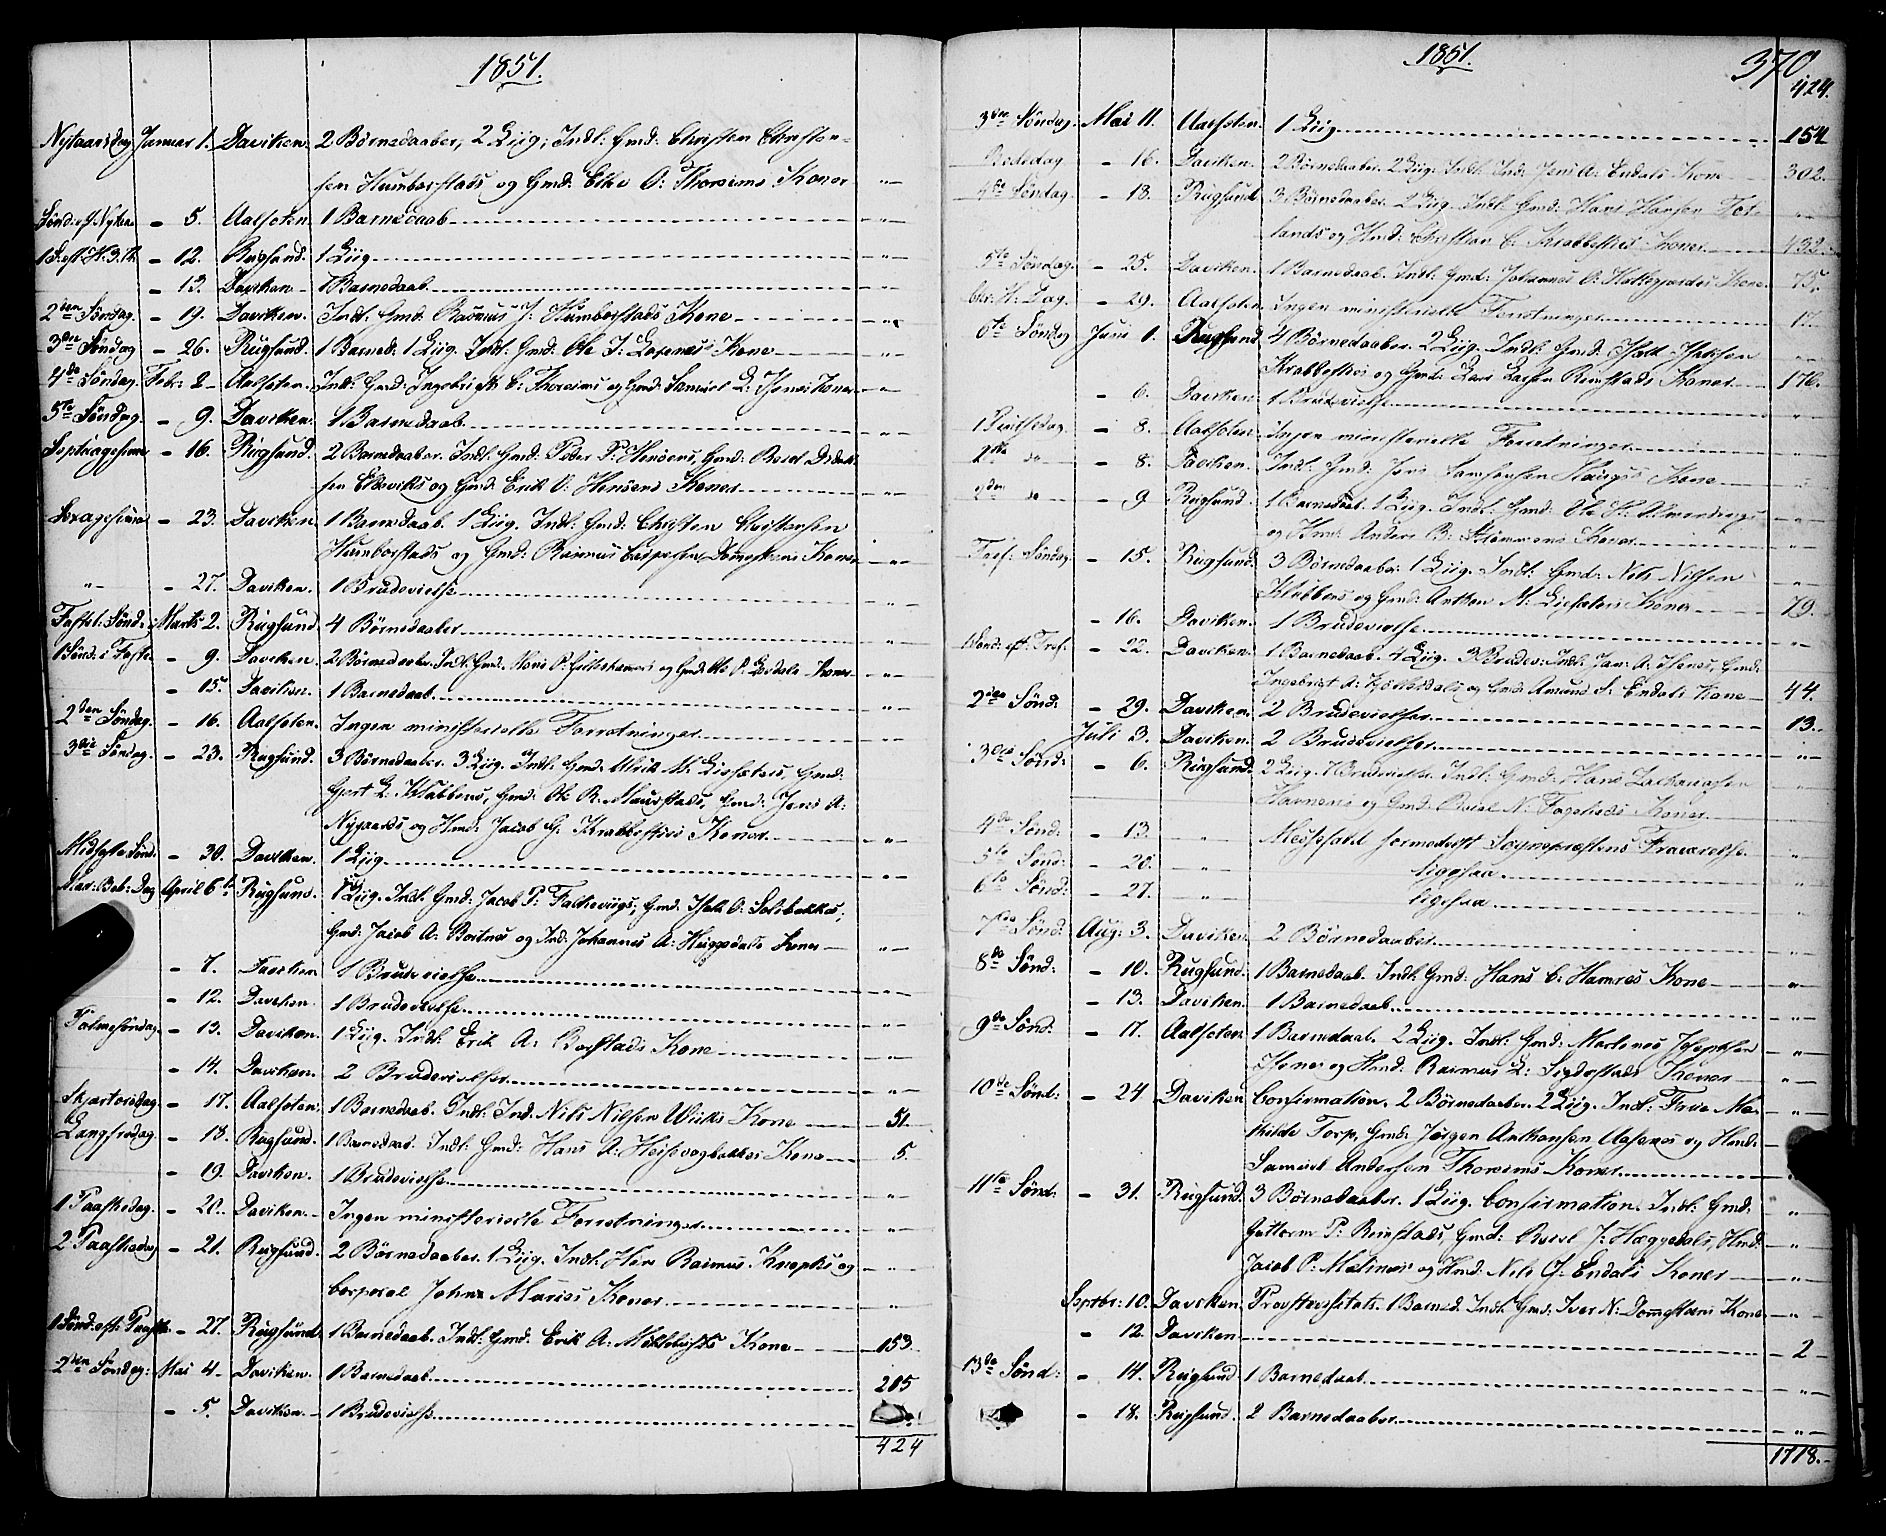 1851.
Nytaarsdag Januar 1. Daviken. 2 Børnedaaber, 2 Liig; Indl: Gmd: Christen Christen-
sen Humborstads og Gmd: Elke O: Thoreims Koner „
Sønd: e. Nytaar - 5. Aalfoten. 1 Barnedaab „
1 S. eft. H. 3. K. - 12. Rugsund. 1 Liig „
- 13. Daviken 1 Barnedaab „
2den Søndag. - 19. Daviken. Indl: Gmd. Rasmus J. Humborstads Kone „
3die Søndag - 26. Rugsund. 1 Barned. 1 Liig. Indl: Gmd: Ole J: Lofnæs Kone „
4de Søndag. Feb: 2 - Aalfoten. Indl: Gmd: Ingebrigt C: Thoreims og Gmd: Samuel L: Koner „
5te Søndag. - 9. Daviken. 1 Barnedaab „
Septuagesima - 16. Rugsund. 2 Barnedaaber. Indl: Gmd: Peder P: Henøens, Gmd: Rasel Didrik-
sen Eldeviks og Gmd: Erik O: Henøens Koner „
Sexagesima - 23. Daviken. 1 Barnedaab. 1 Liig. Indl: Gmd: Christen Christensen
Humborstads og Gmd: Rasmus Caspersen Dommestens Koner „
„ - 27. Daviken. 1 Brudevielse „
Fastel. Sønd: Marts 2. Rugsund 4 Børnedaaber „
1 Sønd: i Faste - 9. Daviken. 2 Børnedaaber. Indl: Gmd: Hans P: og Gmd: Ole P. Koner „
- 15. Daviken. 1 Barnedaab „
2den Søndag. - 16. Aalfoten. Ingen ministerielle Forretninger „
3die Søndag. - 23. Rugsund. 3 Børnedaaber. 3 Liig. Indl: Gmd: Ulrik M: Lisæters, Gmd:
Gjert L: Klubbens, Gmd: Ole R. Maurstads, Gmd: Jens A:
Nygaards og Hmd: Jacob G: Krabbestius Koner „
Midfaste Sønd. - 30. Daviken. 1 Liig „
Mar: Beb: Dag April 6te Rugsund. 1 Liig. Indl: Gmd: Jacob P: Falkevigs, Gmd: Isak O: Solibakkes,
Gmd: Jacob A: Bortnes og Ind: Johannes A: Heggedals Koner „
- 7. Daviken 1 Brudevielse „
- 12. Daviken. 1 Brudevielse „
Palmesøndag - 13. Daviken. 1 Liig. Indl: Erik A: Borstads Kone „
- 14. Daviken. 2 Brudevielser „
Skjærtorsdag. - 17. Aalfoten. 1 Barnedaab. Indl: Ind: Nils Nilsen Viks Kone 51
Langfredag. - 18. Rugsund. 1 Barnedaab. Indl: Gmd: Hans A: Kone 5.
- 19. Daviken. 1 Brudevielse „
1 Paaskedag. - 20. Daviken. Ingen ministerielle Forretninger „
2 Paaskedag - 21. Rugsund. 2 Børnedaaber. 1 Liig. Indl: Herr Rasmus Knaphs og
Corporal Johan Maries Koner „
1 Sønd: eft: Paaske - 27. Rugsund. 1 Barnedaab. Indl: Gmd: Erik A: Myklebusts Kone 153.
2den Søndag: Mai 4 Daviken. 1 Barnedaab 215
- 5. Daviken. 1 Brudevielse
424
1851.
370
424.
3die Søndag. Mai 11. Aalfoten. 1 Liig 154
Bededag - 16. Daviken. 2 Børnedaaber. 2 Liig. Indl: Ind: Jens A: Endals Kone 302.
4de Søndag - 18. Rugsund. 3 Børnedaaber. 2 Liig. Indl: Gmd: Hans Hansen Tot-
lands og Hmd: Christian C: Krabbestius Koner 432.
5te Søndag. - 25. Daviken. 1 Barnedaab. Indl: Gmd: Johannes O: Kone. 75.
Chr: H: Dag. - 29. Aalfoten Ingen ministerielle Forretninger 17.
6te Søndag Juni 1. Rugsund 4 Børnedaaber. 2 Liig. Indl: Gmd: Isak Isaksen
Krabbestius og Gmd: Lars Larsen Rimstads Koner 176.
- 6. Daviken. 1 Brudevielse „
1 Pintsedag. - 8. Aalfoten Ingen ministerielle Forretninger „
2den do - 8. Daviken. Indl: Gmd: Jens Samsonsen Haugs Kone „
2den do - 9 Rugsund. 1 Barnedaab. 1 Liig. Indl: Gmd: Ole H:
og Hmd: Anders B: Strømmens Koner „
Tref. Søndag - 15. Rugsund. 3 Børnedaaber. 1 Liig. Indl: Gmd: Nils Nilsen
Klubbens og Gmd: Anthon M: Lisæters Koner 79.
- 16. Daviken. 1 Brudevielse „
1 Sønd: eft. Tref. - 22. Daviken. 1 Barnedaab. 4 Liig. 3 Brudev: Indl: A: Henes, Gmd:
Ingebrigt A: Hjelledals og Gmd: Amund S: Endals Kone 44.
2den Sønd: - 29. Daviken. 2 Brudevielser 13.
Juli 3. Daviken. 2 Brudevielser „
3die Sønd: - 6. Rugsund. 2 Liig. 1 Brudevielse. Indl: Gmd: Hans Zachariasen
Havnens og Gmd: Rasel N: Koner „
4de Sønd: - 13. „ Messefald formedelst Sognepræstens Fraværelse „
5te Sønd: - 20. „ ligesaa „
6te Sønd: - 27. „ ligesaa „
7de Sønd: Aug: 3. Daviken. 2 Børnedaaber „
8de Sønd: - 10. Rugsund. 1 Barnedaab. Indl: Gmd: Hans C: Hamres Kone „
- 13. Daviken. 1 Barnedaab „
9de Sønd: - 17. Aalfoten. 1 Barnedaab. 2 Liig. Indl: Gmd: Martinus Josephsen
Isenes og Hmd: Rasmus L: Sigdestads Koner „
10de Sønd: - 24 Daviken Confirmation. 2 Børnedaaber. 2 Liig. Indl: Frue Ma-
thilde Torp, Gmd: Jørgen Anthonsen Aasenes og Hmd:
Samuel Andersen Thoreims Koner „
11te Sønd: - 31. Rugsund. 3 Børnedaaber. 1 Liig. Confirmation. Indl: Gmd:
Guttorm P: Rimstads, Gmd: Rasel J: Heggedals, Hmd:
Jacob P: Matines og Hmd: Nils J: Endals Koner „
Septbr: 10. Daviken. Provstevisitats. 1 Barned. Indl: Gmd: Iver N: Dommestens Kone „
- 12. Daviken 2
13de Sønd: - 14. Rugsund. 1 Barnedaab „
- 18. Rugsund. 2 Barnedaaber „
1718.